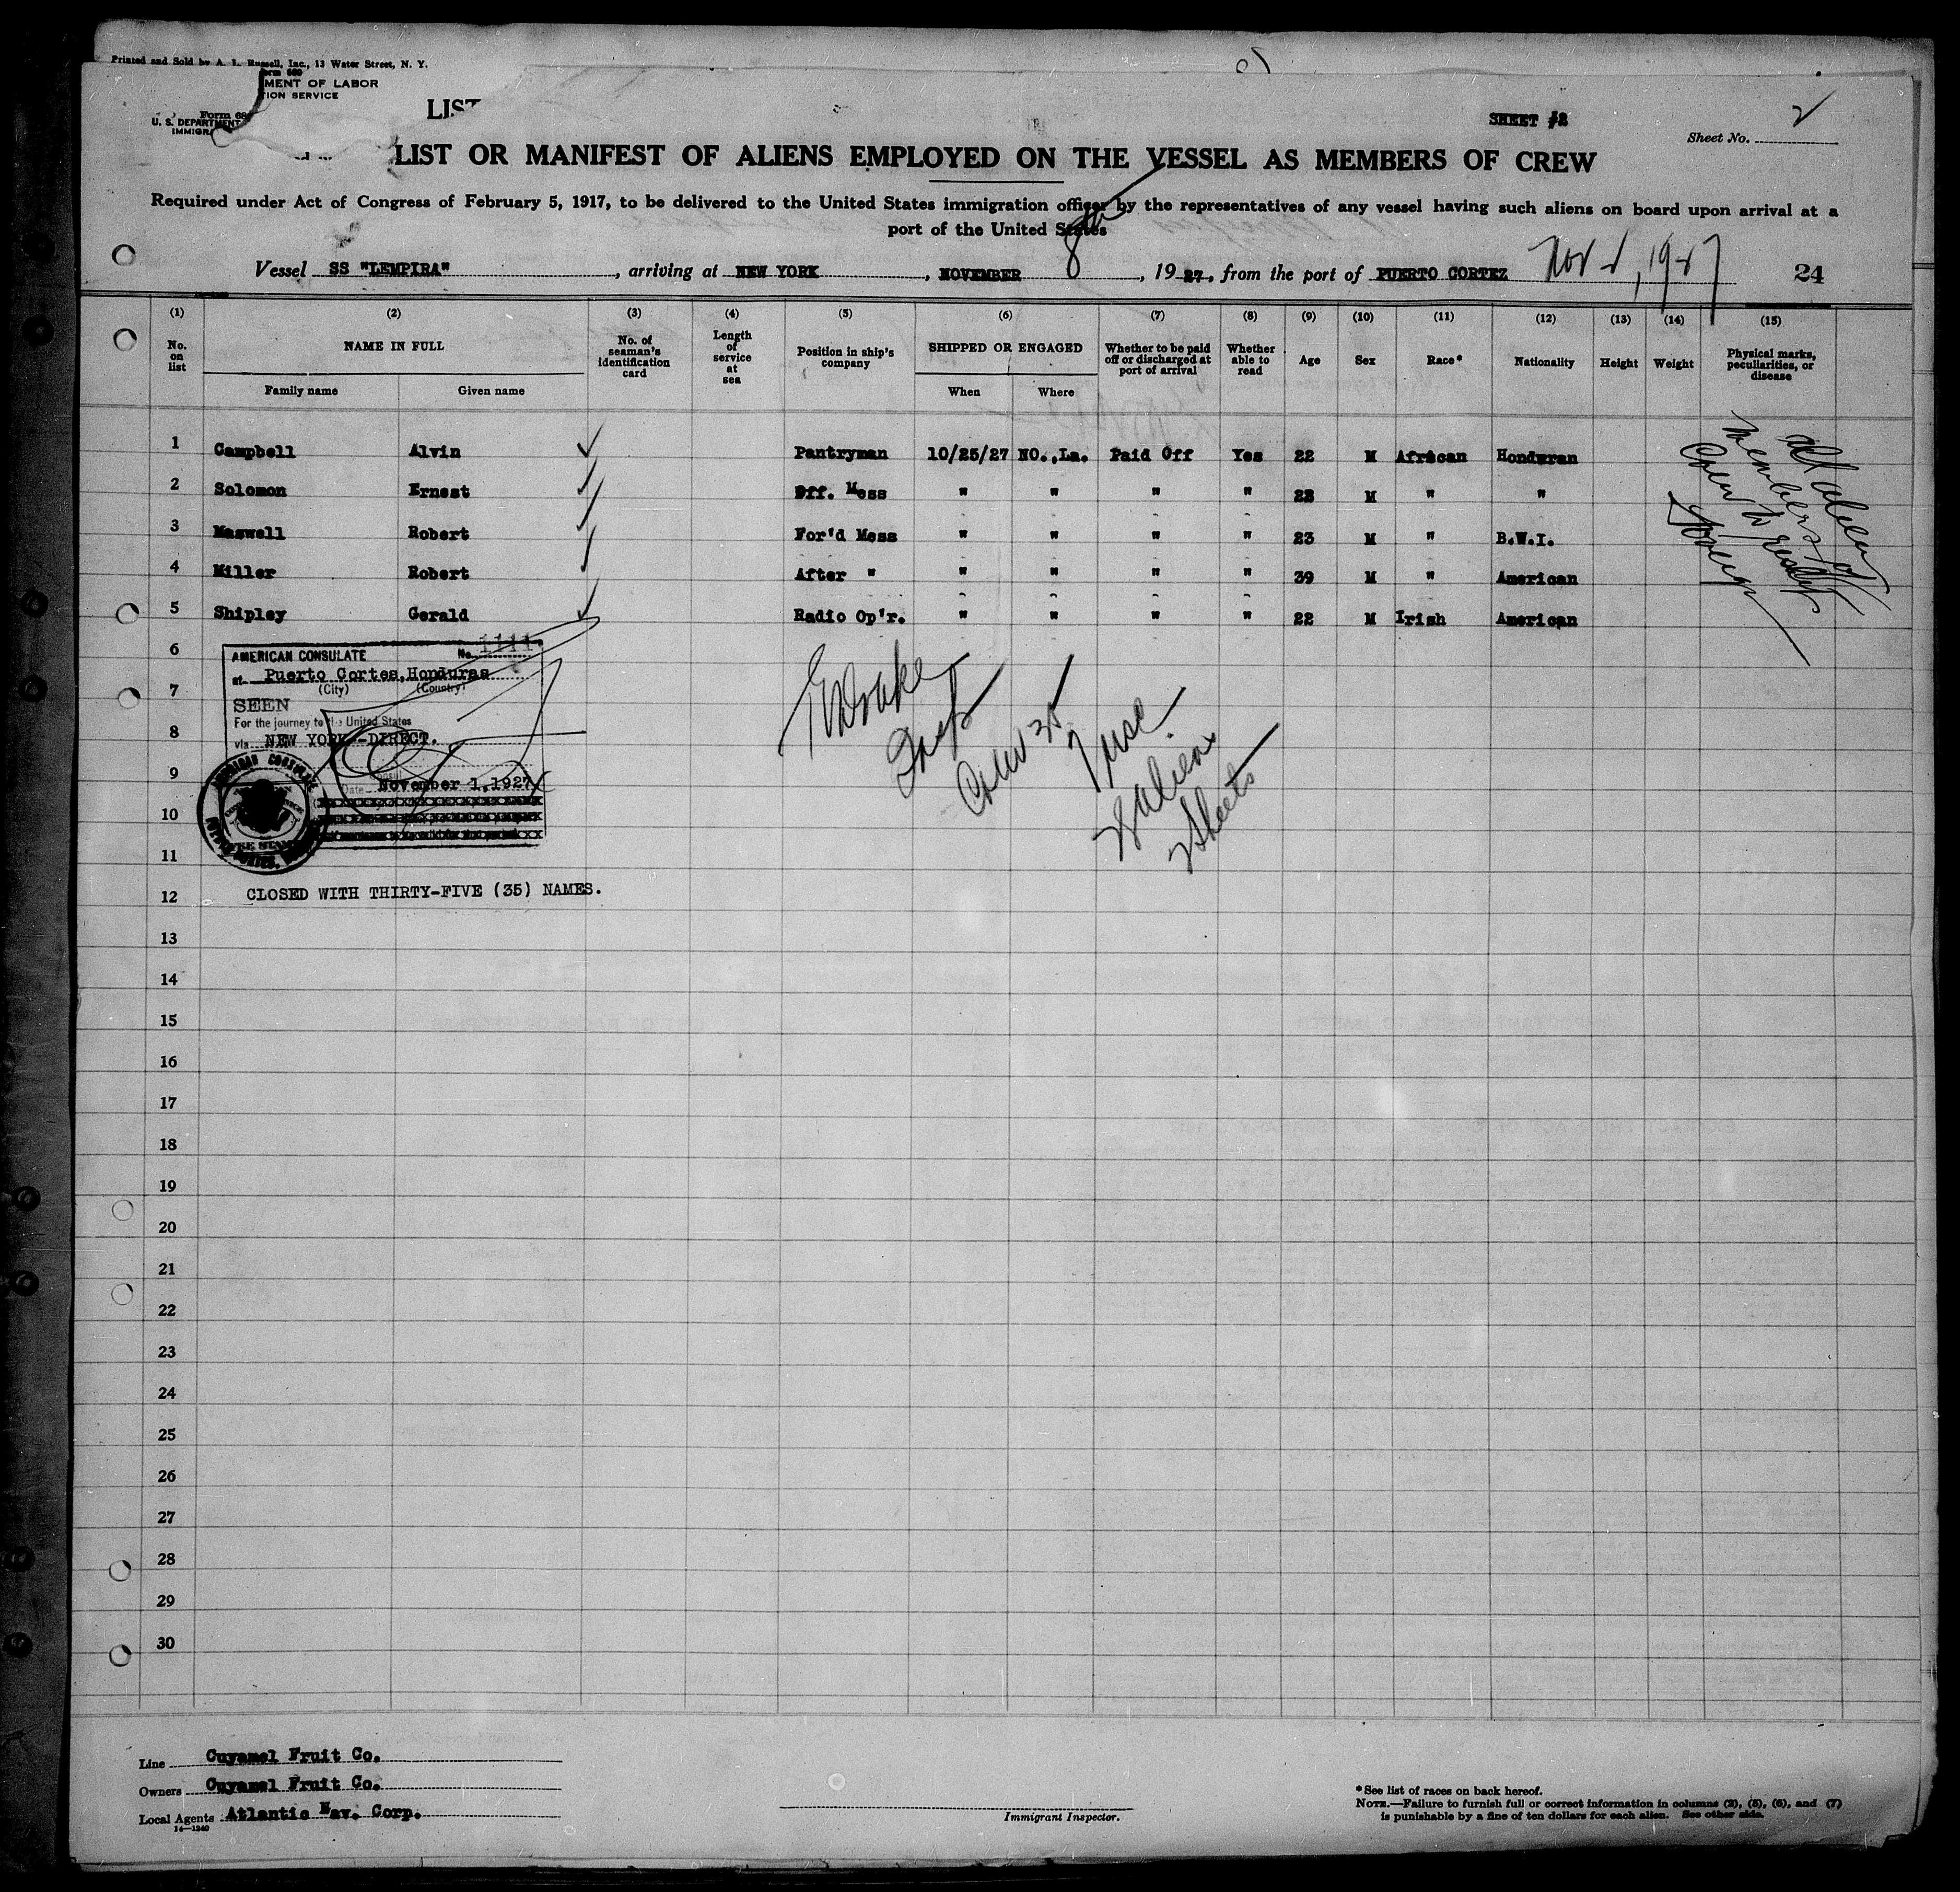 Printed and Sold by A. L. Russell, Inc., 13 Water Street, N. Y.
Form 680
MENT OF LABOR
TION SERVICE
Form 68
U. S. DEPARTMENT
IMMIGRA
LIST
SHEET #2
Sheet No. 2
LIST OR MANIFEST OF ALIENS EMPLOYED ON THE VESSEL AS MEMBERS OF CREW
Required under Act of Congress of February 5, 1917, to be delivered to the United States immigration officer by the representatives of any vessel having such aliens on board upon arrival at a
port of the United States
Vessel SS "LEMPIRA", arriving at NEW YORK, NOVEMBER 8th, 1927, from the port of PUERTO CORTEZ Nov 2, 1927 24
(1) (2) (3) (4) (5) (6) (7) (8) (9) (10) (11) (12) (13) (14) (15)
No. on list NAME IN FULL No. of seaman's identification card Length of service at sea Position in ship's company SHIPPED OR ENGAGED Whether to be paid off or discharged at port of arrival Whether able to read Age Sex Race* Nationality Height Weight Physical marks, peculiarities, or disease
Family name Given name When Where
1 Campbell Alvin Pantryman 10/25/27 NO.,La. Paid Off Yes 22 M African Honduran
2 Solomon Ernest Off. Mess " " " " 23 M " "
3 Maxwell Robert For'd Mess " " " " 23 M " B.W.I.
4 Miller Robert After " " " " " 39 M " American
5 Shipley Gerald Radio Op'r. " " " " 22 M Irish American
All alien
members of
Crew to
6
7
8
9
10
11
12
13
14
15
16
17
18
19
20
21
22
23
24
25
26
27
28
29
30
AMERICAN CONSULATE No. 1111
at Puerto Cortes, Honduras
(City) (Country)
SEEN
For the journey to the United States
via NEW YORK--DIRECT.
Date November 1, 1927
AMERICAN CONSULATE
Drake
Insp
Crew 35
aliens
2 Sheets
CLOSED WITH THIRTY-FIVE (35) NAMES.
Line Cuyamel Fruit Co.
Owners Cuyamel Fruit Co.
Local Agents Atlantic Nav. Corp.
14—1240
Immigrant Inspector.
*See list of races on back hereof.
NOTE.—Failure to furnish full or correct information in columns (2), (5), (6), and (7)
is punishable by a fine of ten dollars for each alien. See other side.